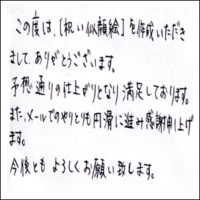 この度は、[祝い似顔絵]を作成いただき
まして、ありがとうございます。
予想通りの仕上がりとなり満足しております。
また、メールでのやりとりも円滑に進み感謝申し上げ
ます。
今後ともよろしくお願い致します。